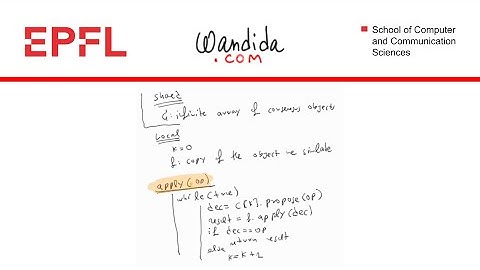 EPFL
Wandida
.COM
School of Computer
and Communication
Sciences
Shared
C: infinite array of consensus objects
Local
k=0
f: copy of the object we simulate
apply(op)
while(true)
dec= C[k].propose(op)
result = f.apply(dec)
if dec==op
return result
else
k=k+1